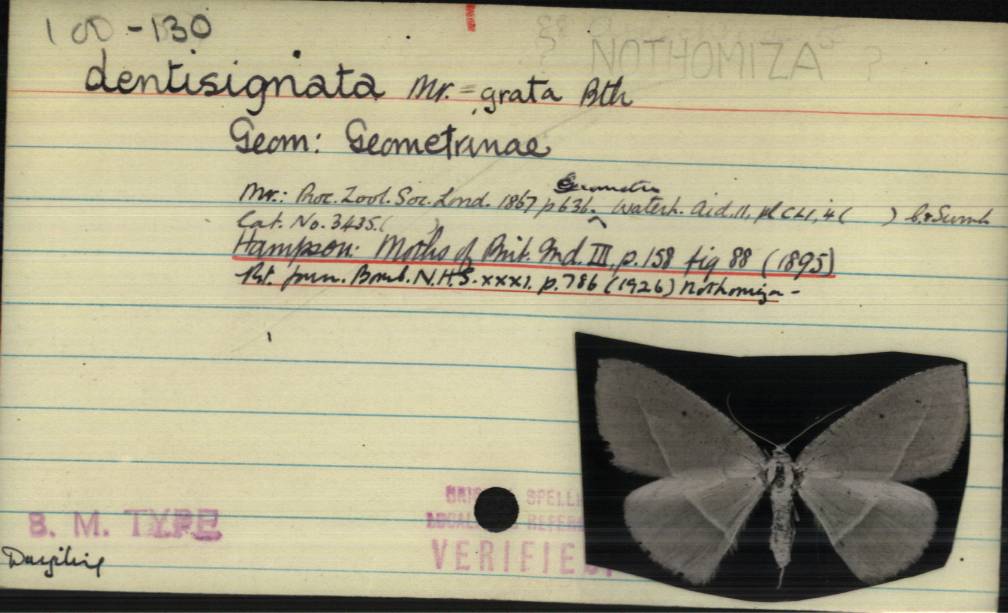 100-130
NOTHOMIZA ?
dentisignata Mr. = grata Bth
Geom: Geometrinae
Geometra
Mr.: Proc. Zool. Soc. Lond. 1867 p 636. ^ Waterh. Aid. II, pl CLI, 4 ( )
Cat. No. 3435. ( )
Hampson: Moths of Brit. Ind. III. p. 158 fig 88 (1895)
Prt. Journ. Bomb. N.H.S. xxxI. p. 786 (1926) Nothomiza -
B. M. TYPE
SPELLI
LOCAL REFER
VERIFIED
Darjiling